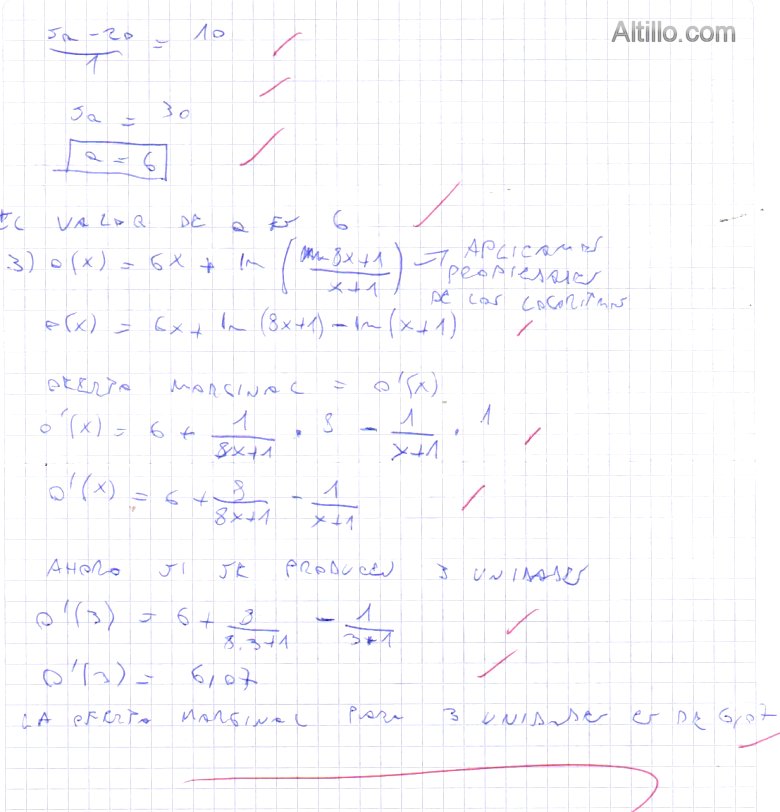 Altillo.com
5a - 20 / 1 = 10
5a = 30
a = 6
EL VALOR DE a ES 6
3) O(x) = 6x + ln (8x+1 / x+1) → APLICAMOS
PROPIEDADES
DE LOS LOGARITMOS
O(x) = 6x + ln (8x+1) - ln (x+1)
OFERTA MARGINAL = O'(x)
O'(x) = 6 + 1/8x+1 . 8 - 1/x+1 . 1
O'(x) = 6 + 8/8x+1 - 1/x+1
AHORA SI SE PRODUCEN 3 UNIDADES
O'(3) = 6 + 8/8.3+1 - 1/3+1
O'(3) = 6,07
LA OFERTA MARGINAL PARA 3 UNIDADES ES DE 6,07